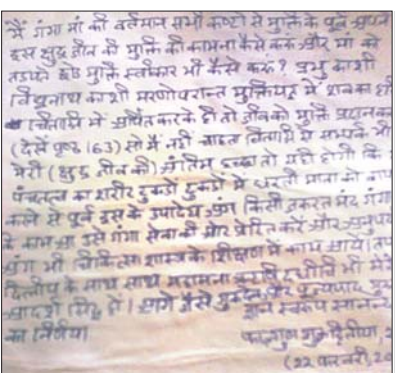 मैं गंगा मां की वर्तमान सभी कष्टों से मुक्ति के पूर्व अपने
इस क्षुद्र जीव की मुक्ति की कामना कैसे करूं और मां को
तड़पते छोड़ मुक्ति स्वीकार भी कैसे करूं? प्रभु काशी
विश्वनाथ काशी मरणोपरान्त मुक्तिपद में शव का
चिताग्नि में अर्पित करके ही तो जीव को मुक्ति प्रदान
(देखें पृष्ठ 163) सो मैं नहीं चाहता चिताग्नि
मेरी (क्षुद्र जीव की) अंतिम इच्छा तो यही होगी कि
पंचतत्व का शरीर टुकड़ों टुकड़ों में धरती माता को
करने से पूर्व इसके उपादेय अंग किसी जरूरत मंद गंगा
के काम आ उसे गंगा सेवा की ओर प्रेरित करें और
अंग भी चिकित्सा शास्त्र के शिक्षण में काम आये।
दिलीप के साथ साथ महामना दधीचि भी मेरे
आदर्श सिद्ध हों। आगे जैसे गुरुदेव और पूज्यपाद
ज्ञान स्वरूप सानन्द
का निर्णय। फाल्गुन शुक्ल द्वितीया,
(22 फरवरी, 20